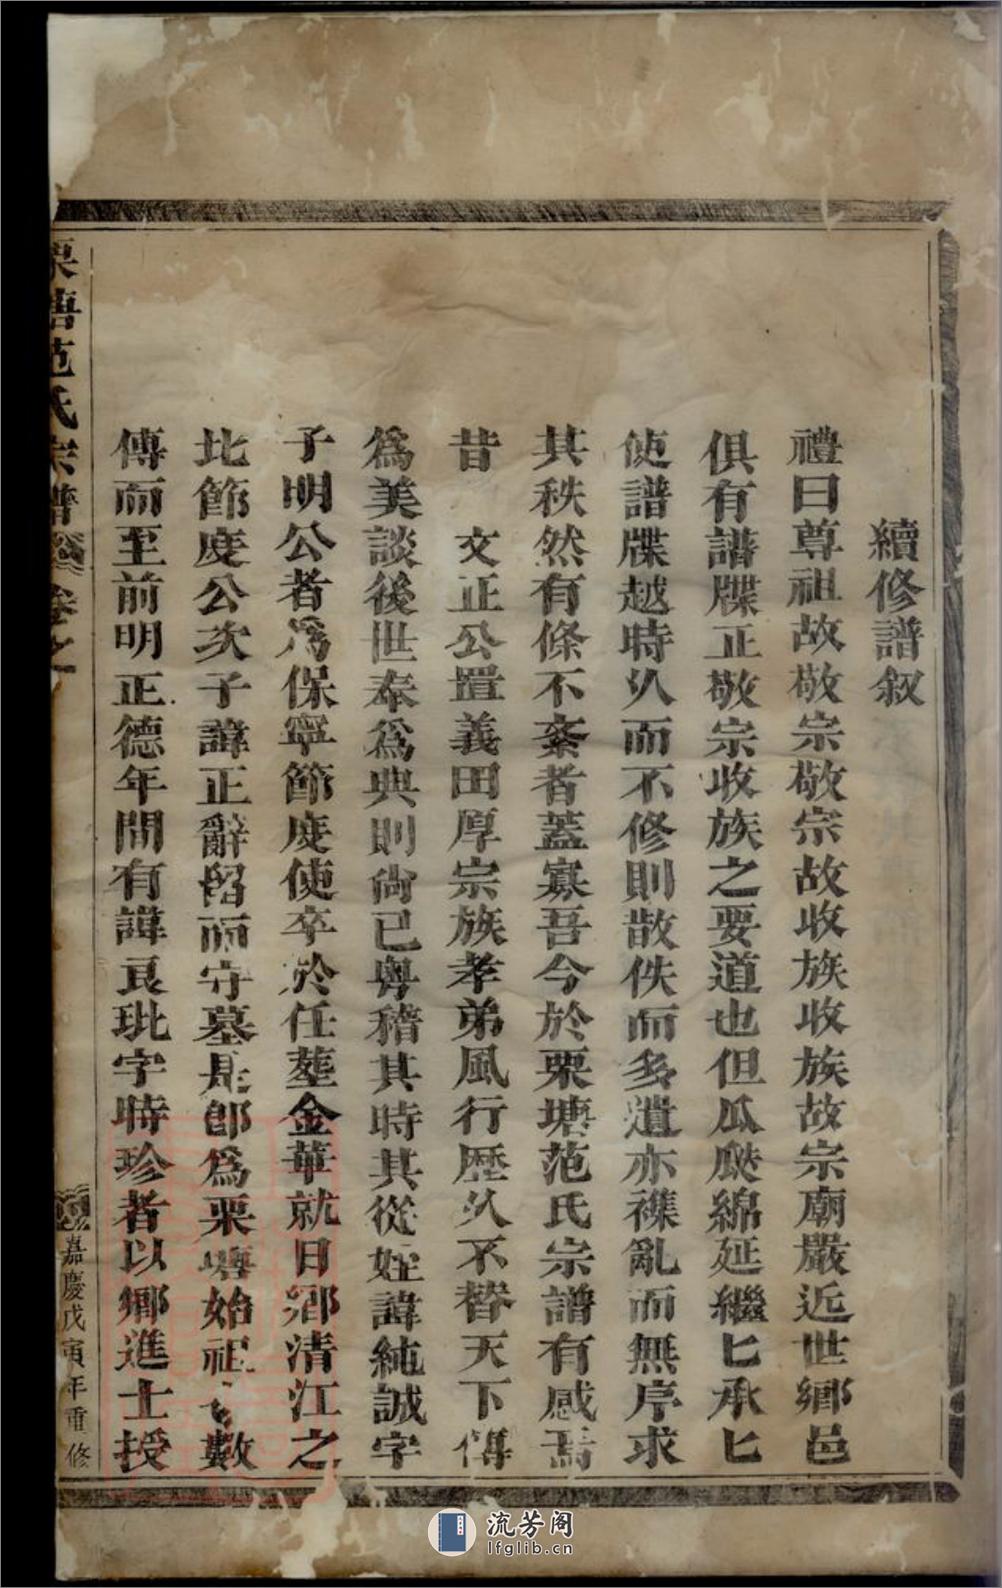 續修譜叙
禮曰尊祖故敬宗敬宗故收族收族故宗廟嚴近世鄉邑
俱有譜牒正敬宗收族之要道也但瓜瓞綿延繼匕承匕
使譜牒越時久而不修則散佚而多遺亦襍亂而無序求
其秩然有條不紊者蓋寡吾今於栗塘范氏宗譜有感焉
昔 文正公置義田厚宗族孝弟風行歷久不替天下傳
為美談後世奉為典則尚已粵稽其時其從姪諱純誠字
子明公者為保寧節度使卒於任塟金華就日鄉清江之
北節度公次子諱正辭留而守墓是即為栗塘始祖 數
傳而至前明正德年間有諱良玭字時珍者以鄉進士授
栗塘范氏宗譜 卷之
嘉慶戊寅年重修
流芳阁
lfglib.cn